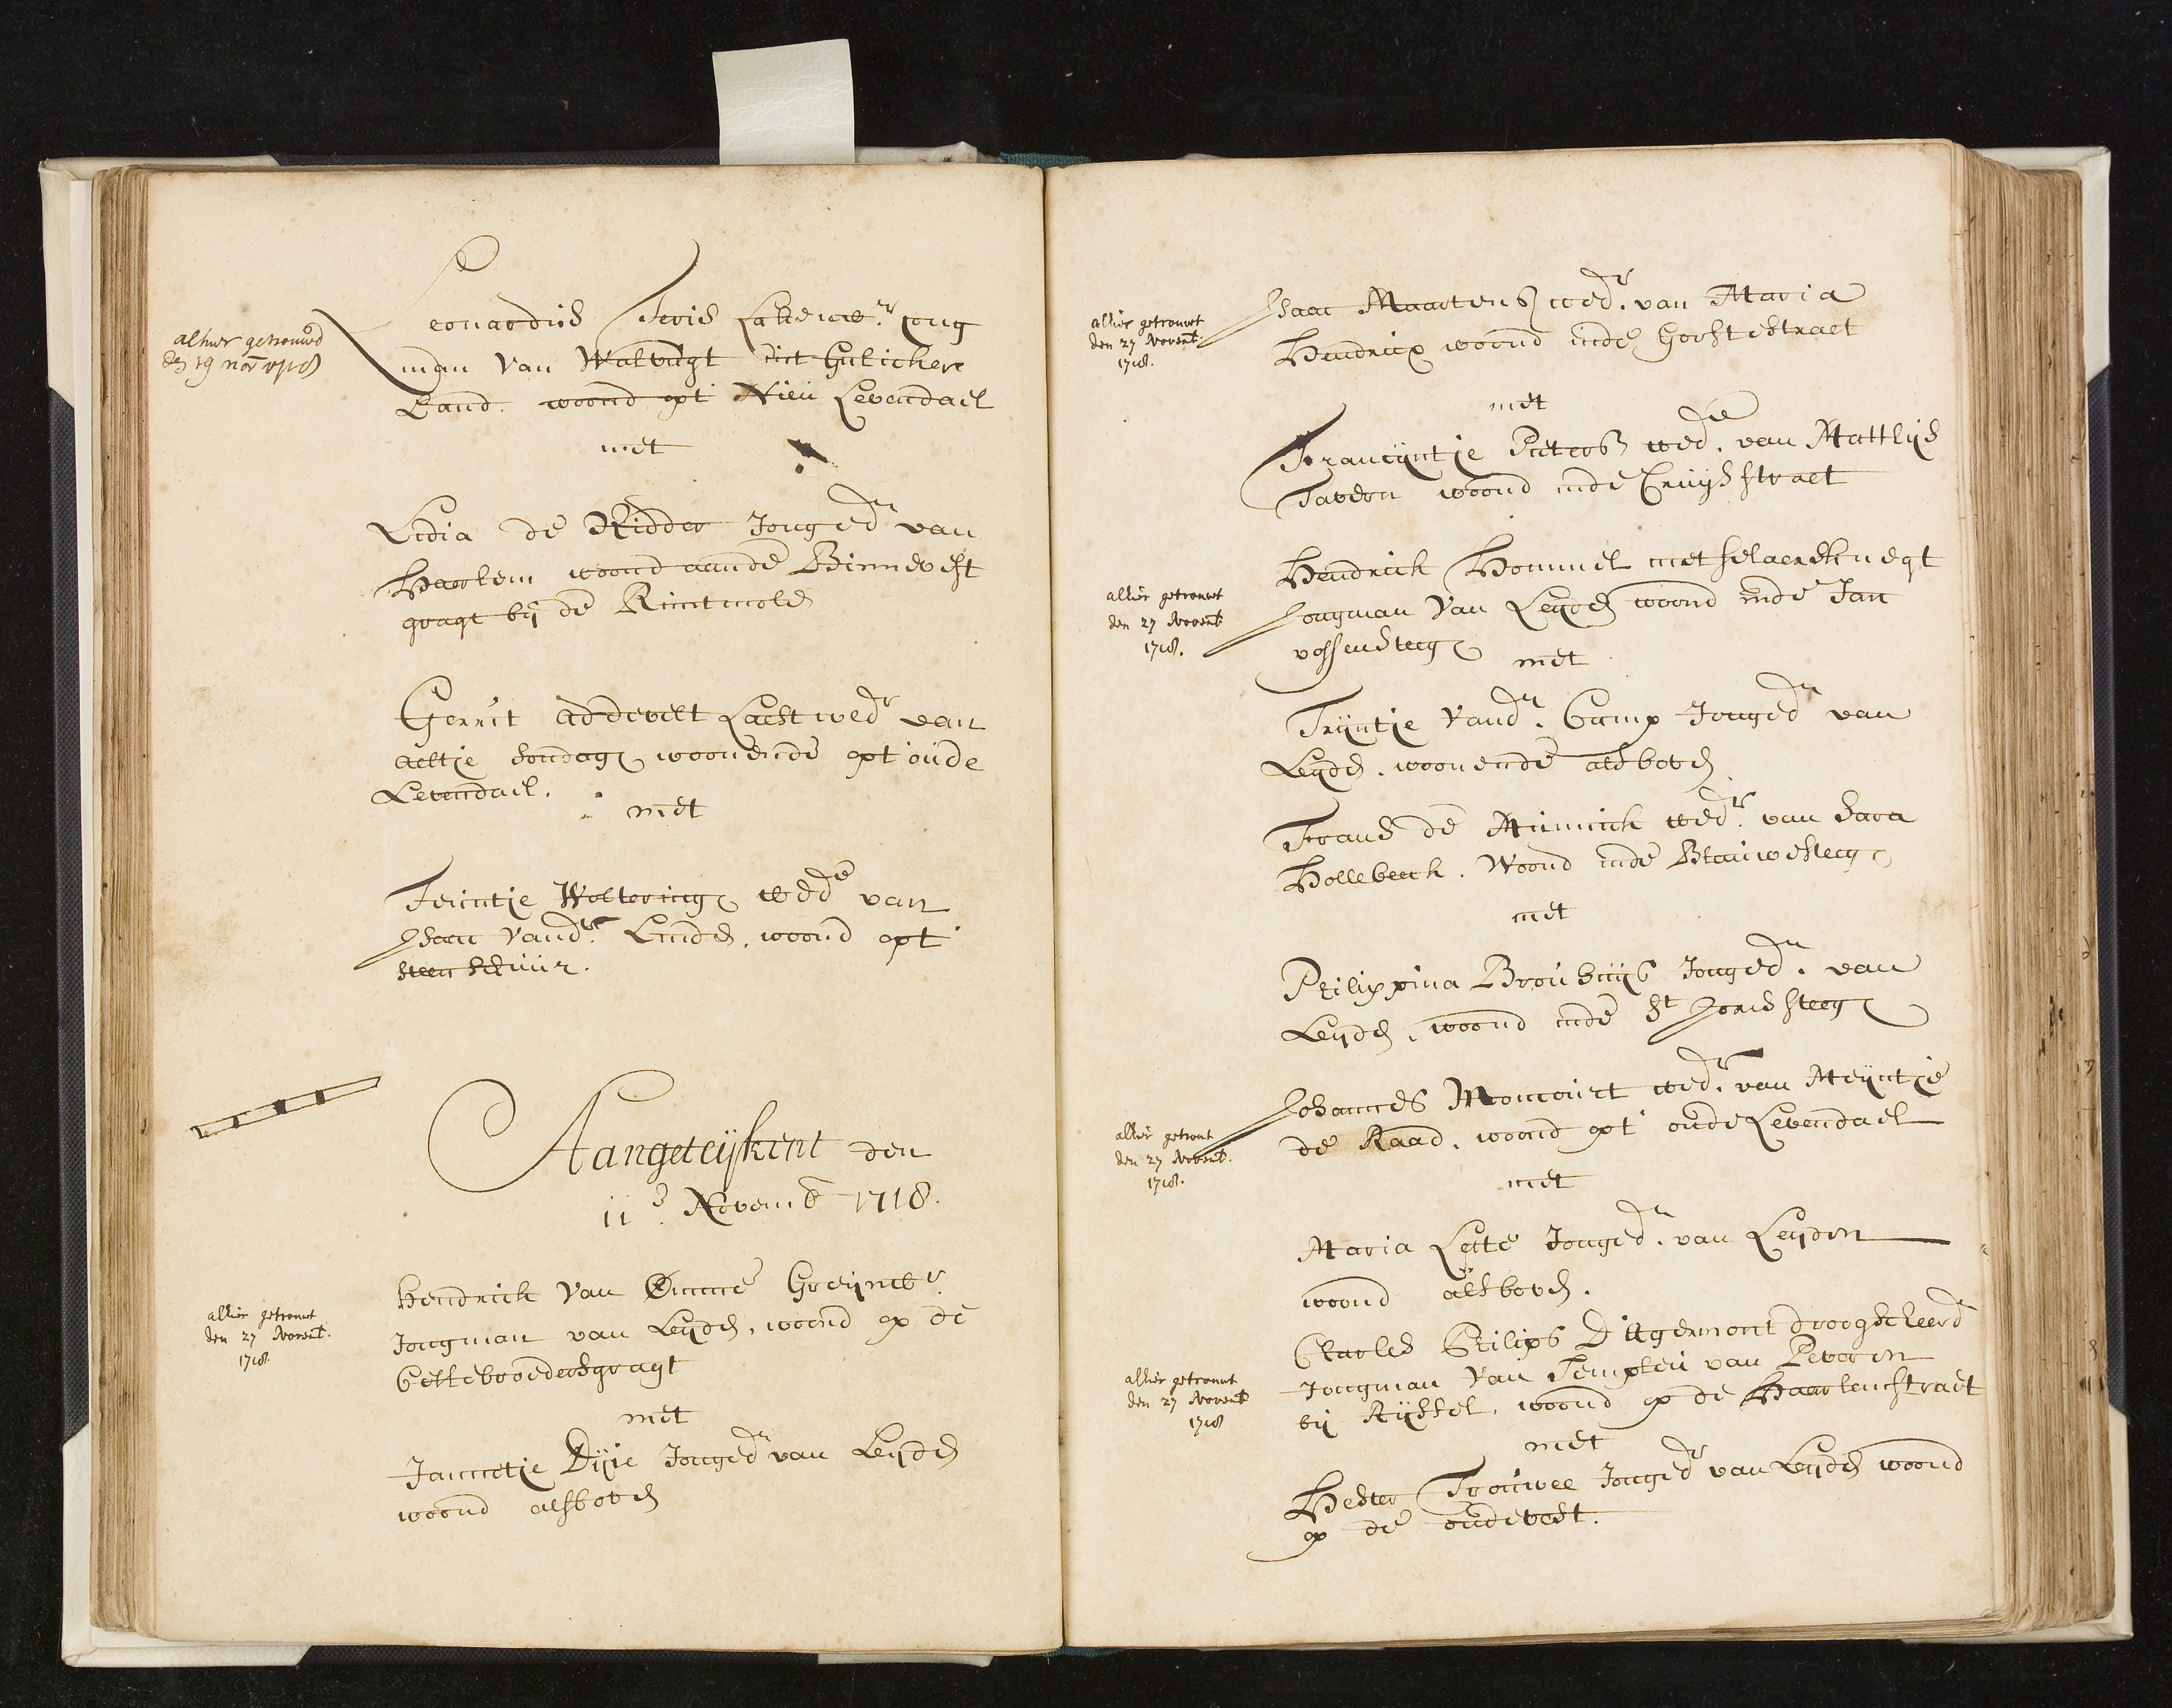 alhier getrouwd
den 19 nov 1718
Leonardus Lakenwr. jong
man van uijt Gulickere
Land. woond opt Nieu Levendael
met
Lidia de Ridder Jonged van
Haerlem woond aande Binnevest
gragt bij de
Gerrit Laest wedr van
Aeltje Sondag woonende opt oude
Levendael.
met
wede van
Isaac vandr. Linden, woond opt
steenschuur.
Aangeteijkent den
11e. Novemb 1718.
allier getrouwt
den 27 Novemb.
1718.
Hendrick van Greijnwr.
Jongman van Leijden, woond op de
Cellebroedersgragt
met
Jannetje Dijie Jonged van Leijden
woond alsboven
allier getrouwt
den 27 Novemb.
1718.
Isaac Maartens wedr. van Maria
Hendricx woond inde Gortestraet
met
Francijntje Pieters wede. van Matthijs
Tavern woond inde Cruijsstraet
allier getrouwt
den 27 Novemb
1718.
Hendrick Hommel metselaersknegt
Jongman van Leijden woond inde Jan
vossensteeg
met
Trijntje vandr. Camp Jonged van
Leijden. woonende alsboven
Frans de Munnick wedr. van Sara
Hollebeeck. Woond inde Blauwesteeg
met
Philippina Brouhuijs Jonged. van
Leijden, woond inde St Jorissteeg
allier getrout
den 27 Novemb.
1718.
Johannes Moncourt wedr. van Meijntje
de Raad. woond opt oude Levendael
met
Maria Lette Jonged. van Leijden
woond alsboven.
allier getrouwt
den 27 Novemb
1718
Charles Philips D'Agermont droogscheerdr
Jongman van Templeu van Peveren
bij Rijssel, woond op de Haarlemstraet
met
Hester Trouwee Jonged van Leijden woond
op de oudevest.